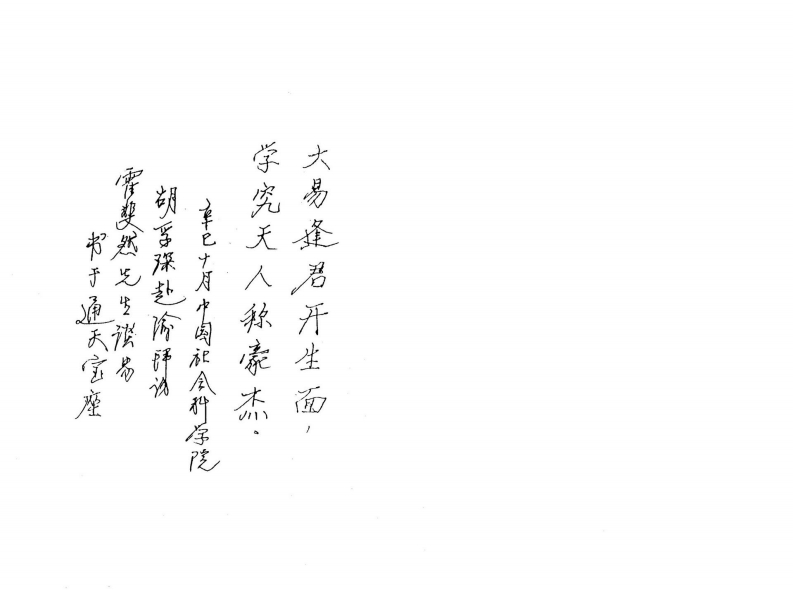 大易逢君开生面，
学究天人称豪杰。
辛巳十月中国社会科学院
胡孚琛赴渝拜访
霍斐然先生谈易
书于通天宝座